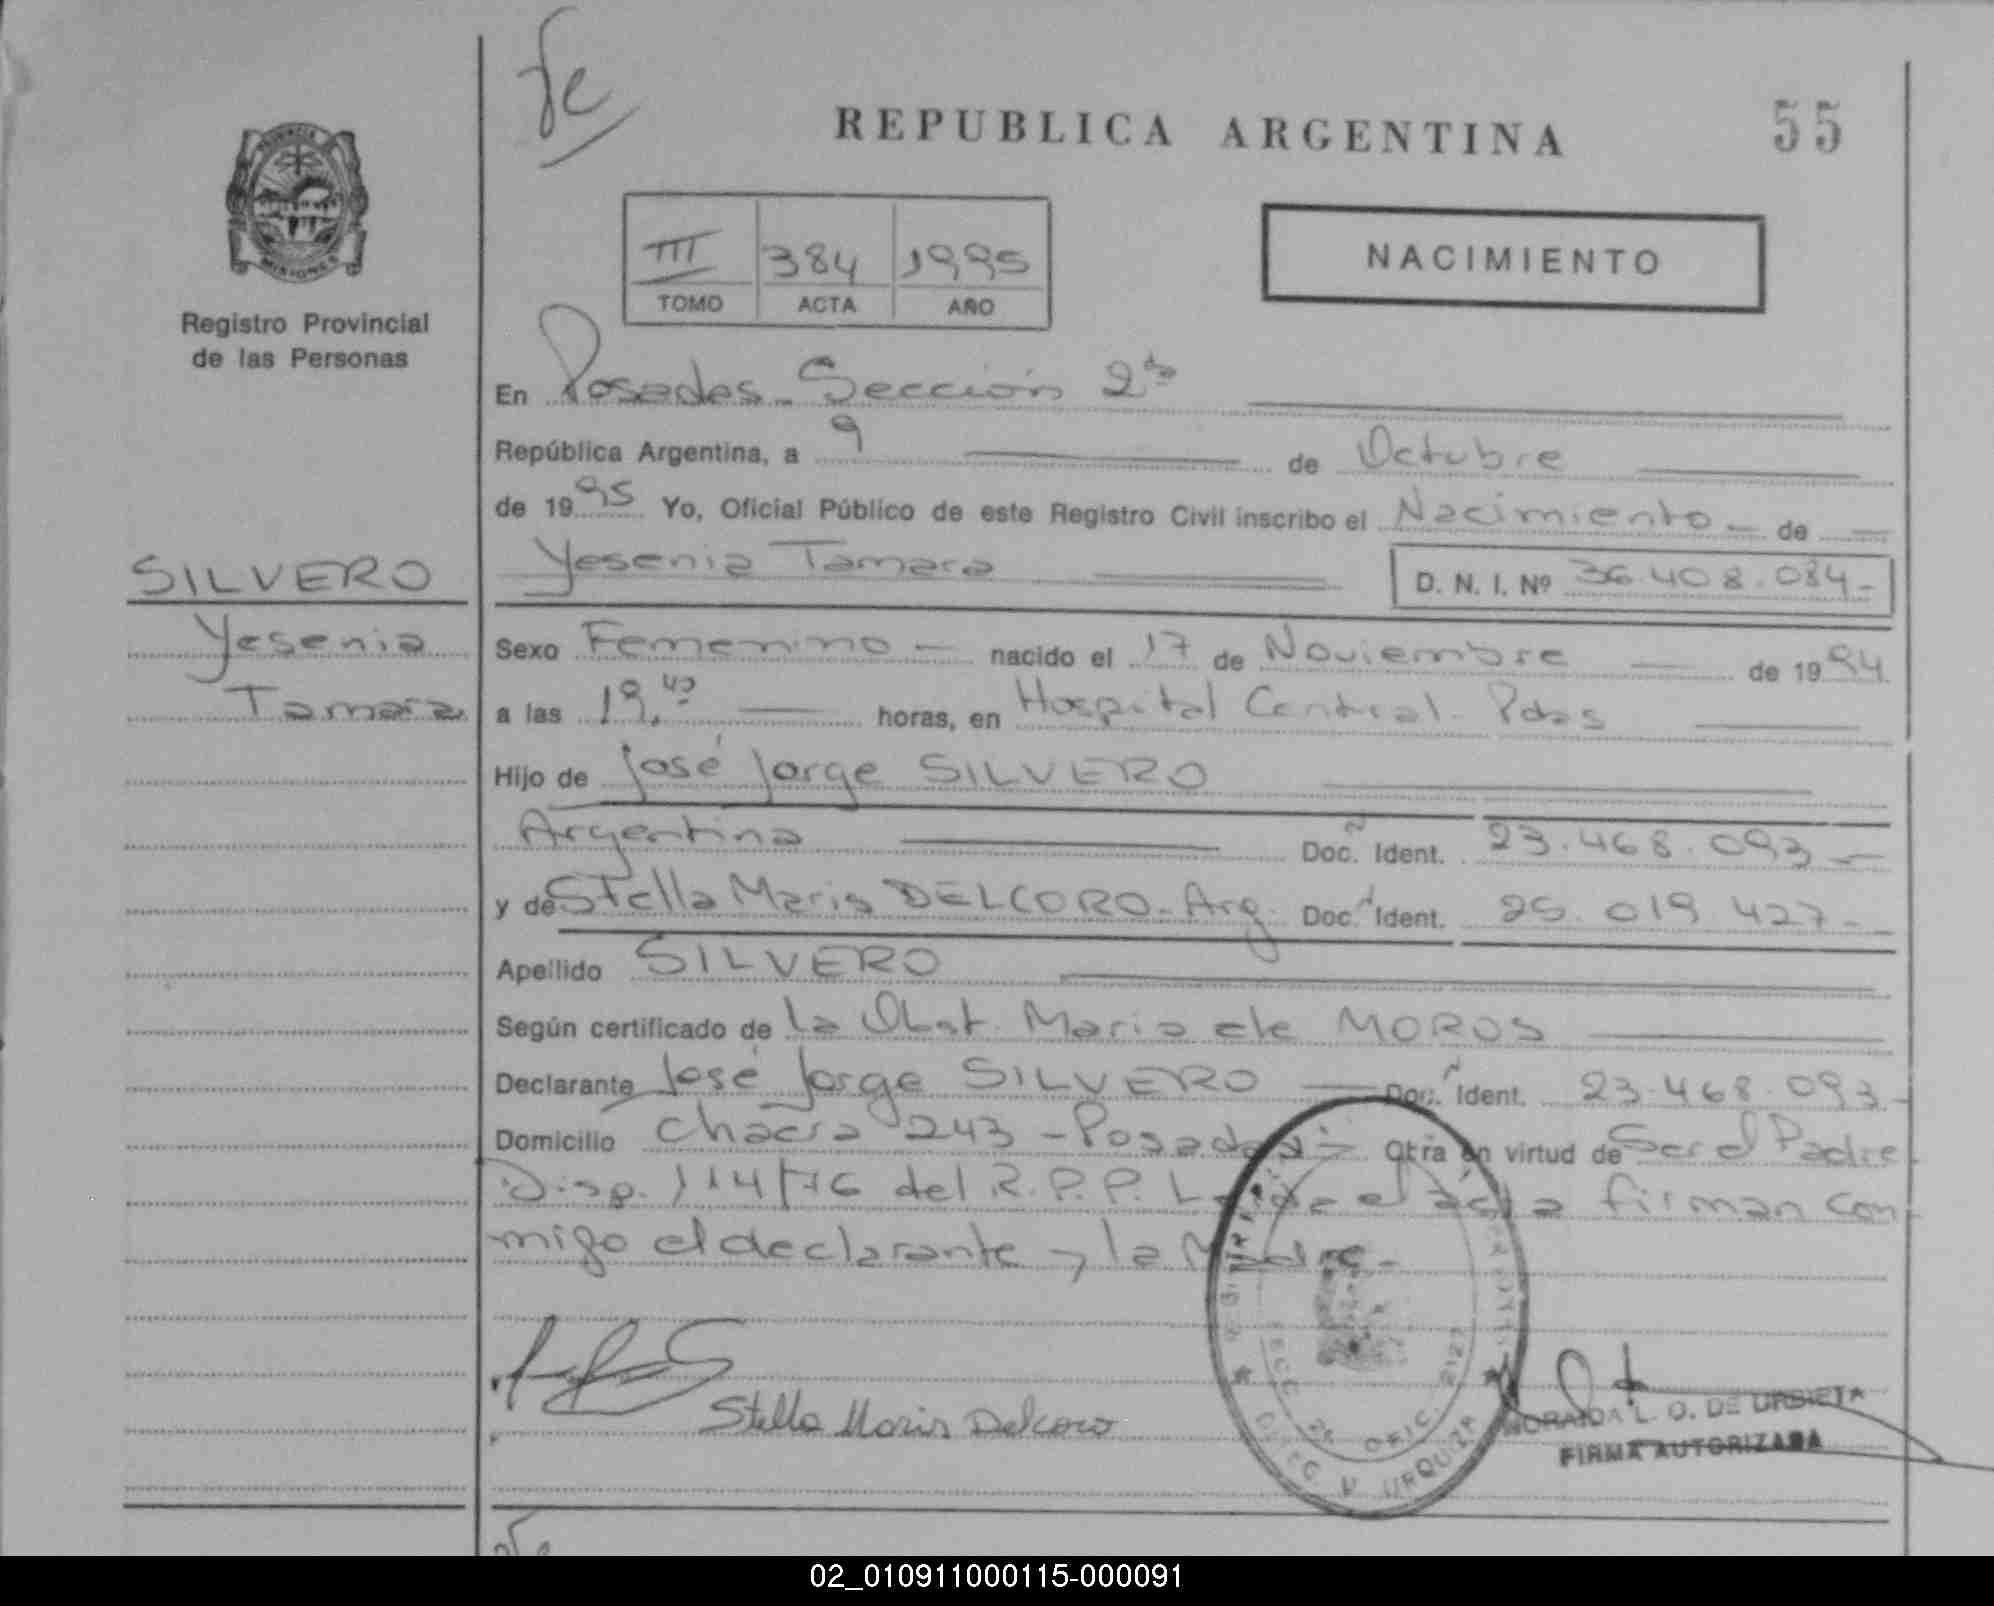 REPUBLICA ARGENTINA
55
MISIONES
Registro Provincial
de las Personas
III 384 1995
TOMO ACTA AÑO
NACIMIENTO
En Posadas - Sección 2da
República Argentina, a 9 de Octubre
de 1995 Yo, Oficial Público de este Registro Civil inscribo el Nacimiento - de
Yesenia Tamara D. N. I. Nº 36.408.084-
SILVERO
Yesenia
Tamara
Sexo Femenino - nacido el 17 de Noviembre de 1994
a las 19,40 horas, en Hospital Central - Pdas
Hijo de José Jorge SILVERO
Argentina Doc. Ident. 23.468.093 -
y de Stella Maris DELCORO - Arg. Doc. Ident. 25.019.427 -
Apellido SILVERO
Según certificado de la Obst. Maria de MOROS
Declarante José Jorge SILVERO Doc. Ident. 23.468.093-
Domicilio Chacra 243 - Posadas - Obra en virtud de Ser el Padre
Disp. 114/76 del R.P.P. Leída el acta firman con
migo el declarante y la Madre -
Stella Maris Delcoro
SECC 2ª OFIC. 2127
URQUIZA
L. O. DE URBIETA
FIRMA AUTORIZADA
02_010911000115-000091